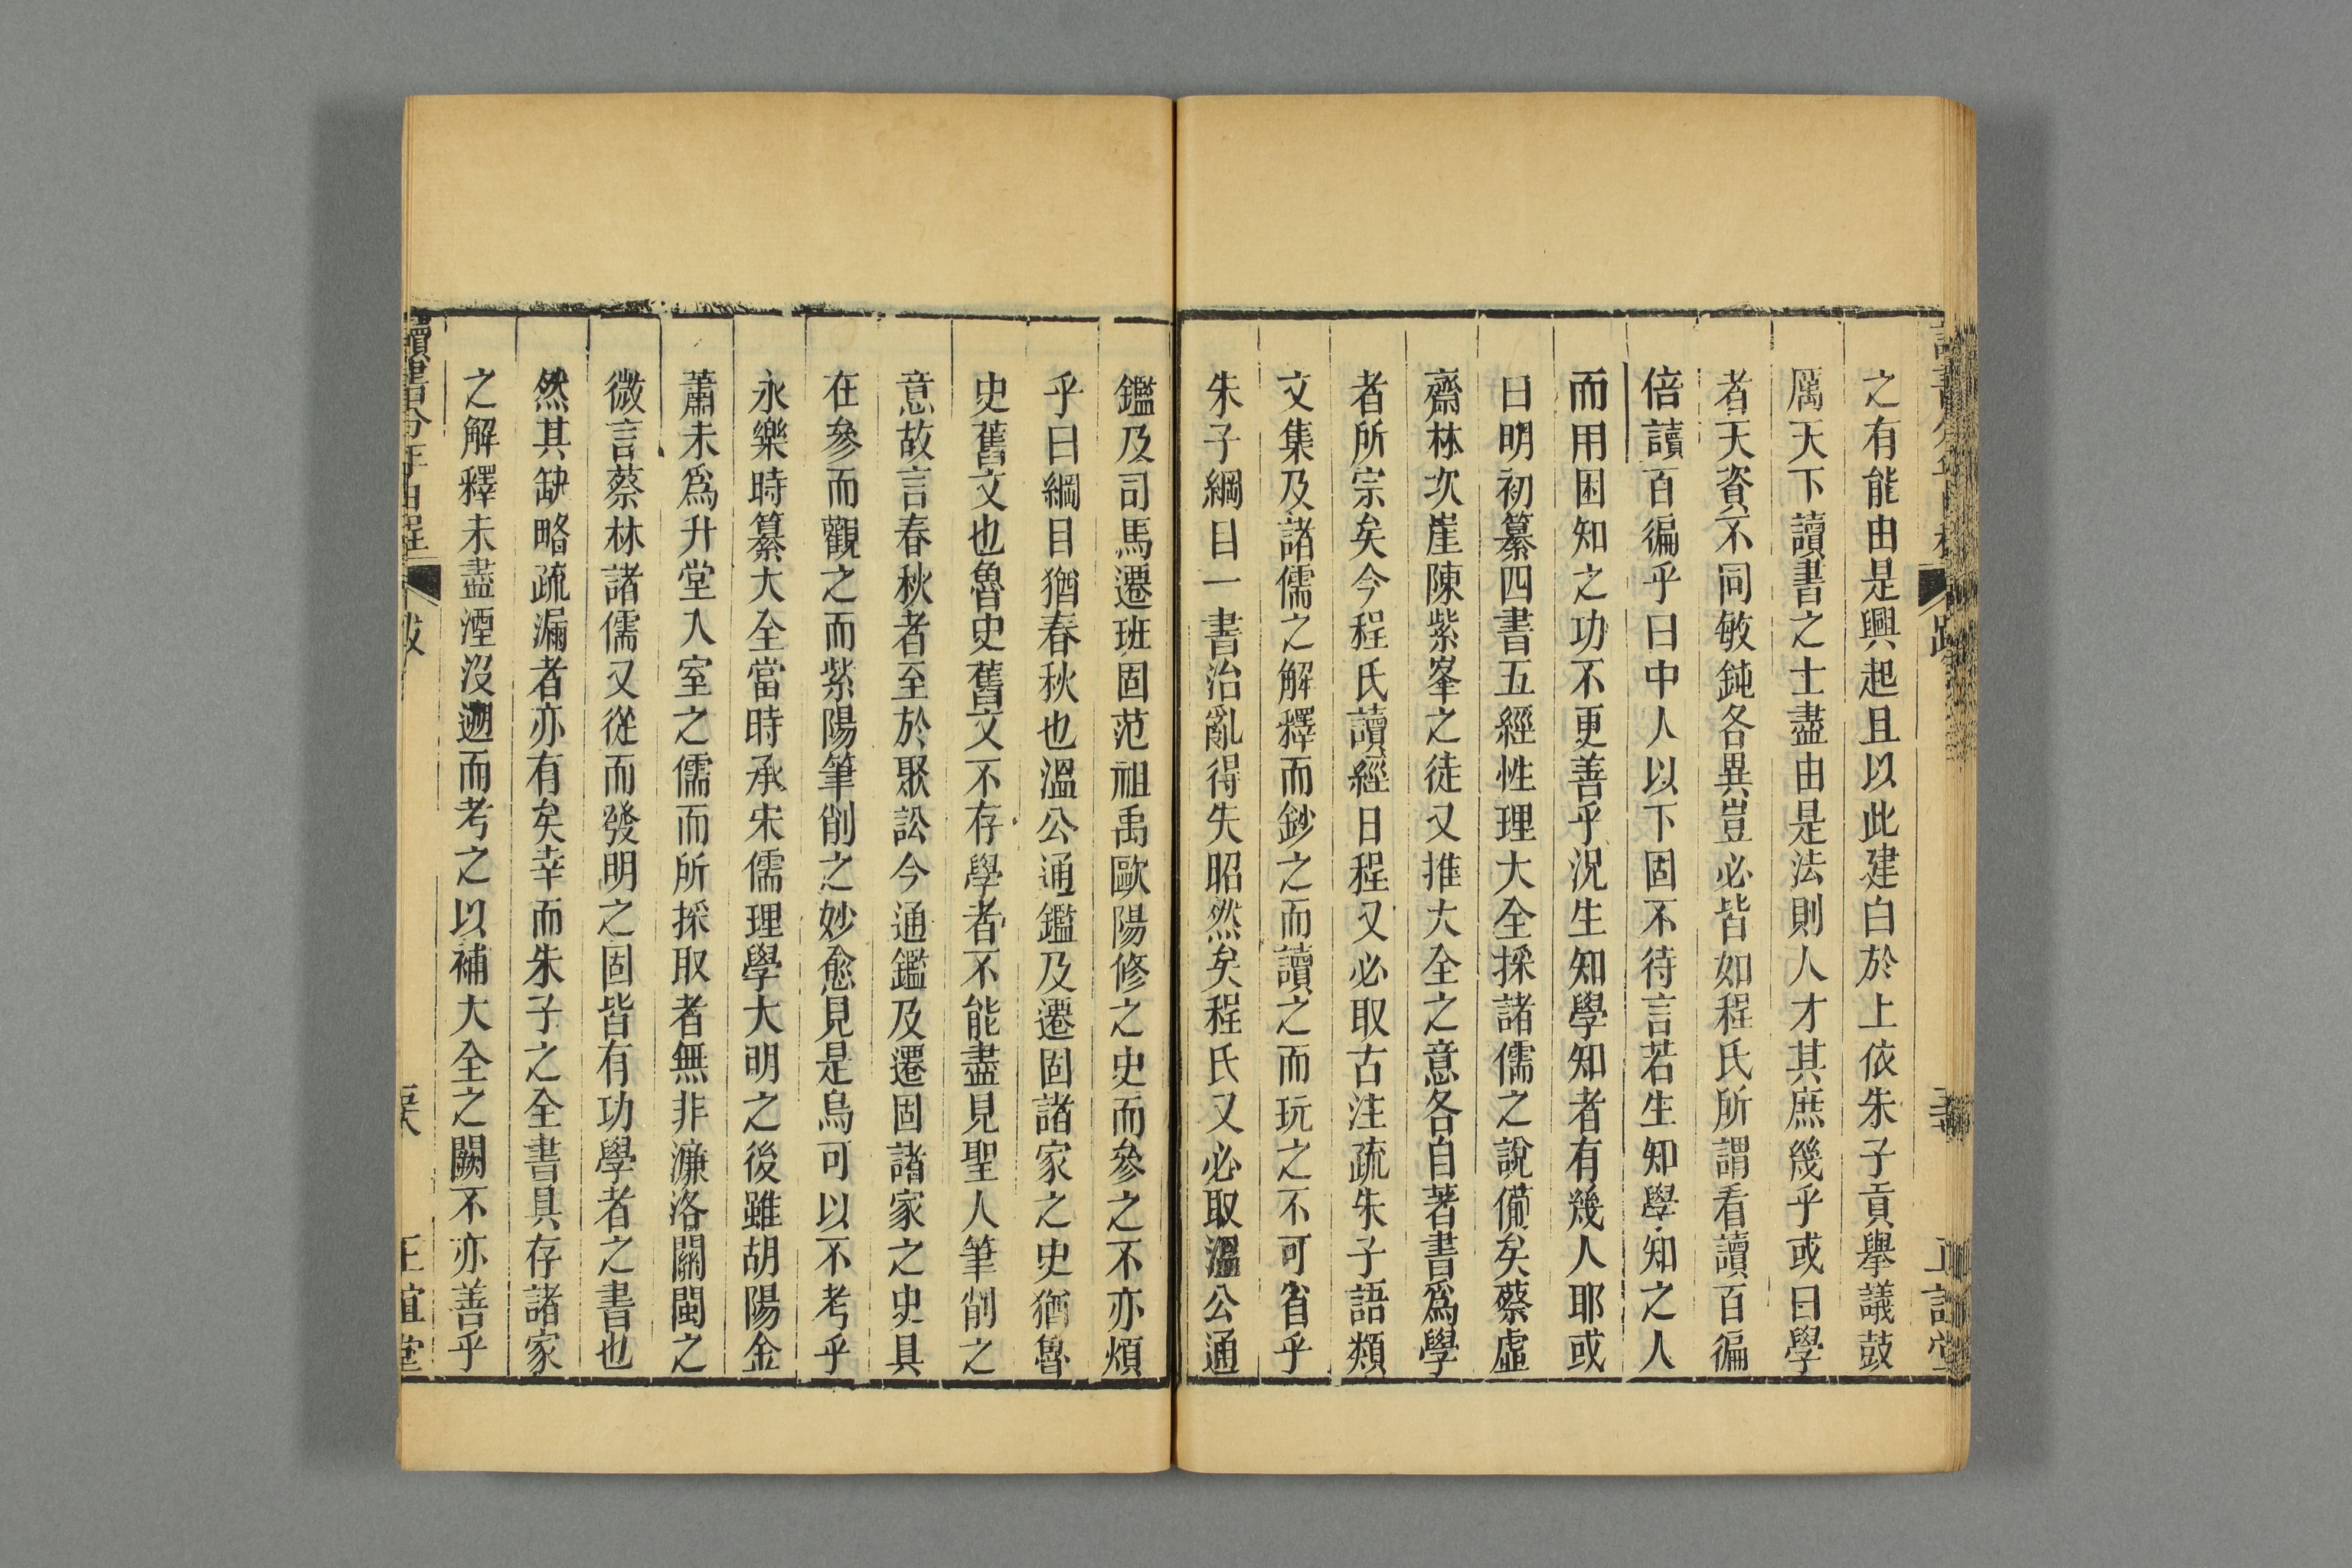 之有能由是興起且以此建白於上依朱子貢舉議鼓
厲天下讀書之士盡由是法則人才其庶幾乎或曰學
者天資不同敏鈍各異豈必皆如程氏所謂看讀百徧
倍讀百徧乎曰中人以下固不待言若生知學知之人
而用困知之功不更善乎況生知學知者有幾人耶或
曰明初纂四書五經性理大全採諸儒之說備矣蔡虛
齋林次崖陳紫峯之徒又推大全之意各自著書爲學
者所宗矣今程氏讀經日程又必取古注疏朱子語類
文集及諸儒之解釋而鈔之而讀之而玩之不可省乎
朱子綱目一書治亂得失昭然矣程氏又必取溫公通
鑑及司馬遷班固范祖禹歐陽修之史而參之不亦煩
乎曰綱目猶春秋也溫公通鑑及遷固諸家之史猶魯
史舊文也魯史舊文不存學者不能盡見聖人筆削之
意故言春秋者至於聚訟今通鑑及遷固諸家之史具
在參而觀之而紫陽筆削之妙愈見是烏可以不考乎
永樂時纂大全當時承宋儒理學大明之後雖胡陽金
蕭未爲升堂入室之儒而所採取者無非濂洛關閩之
微言蔡林諸儒又從而發明之固皆有功學者之書也
然其缺略疏漏者亦有矣幸而朱子之全書具存諸家
之解釋未盡湮沒遡而考之以補大全之闕不亦善乎
讀書分年日程